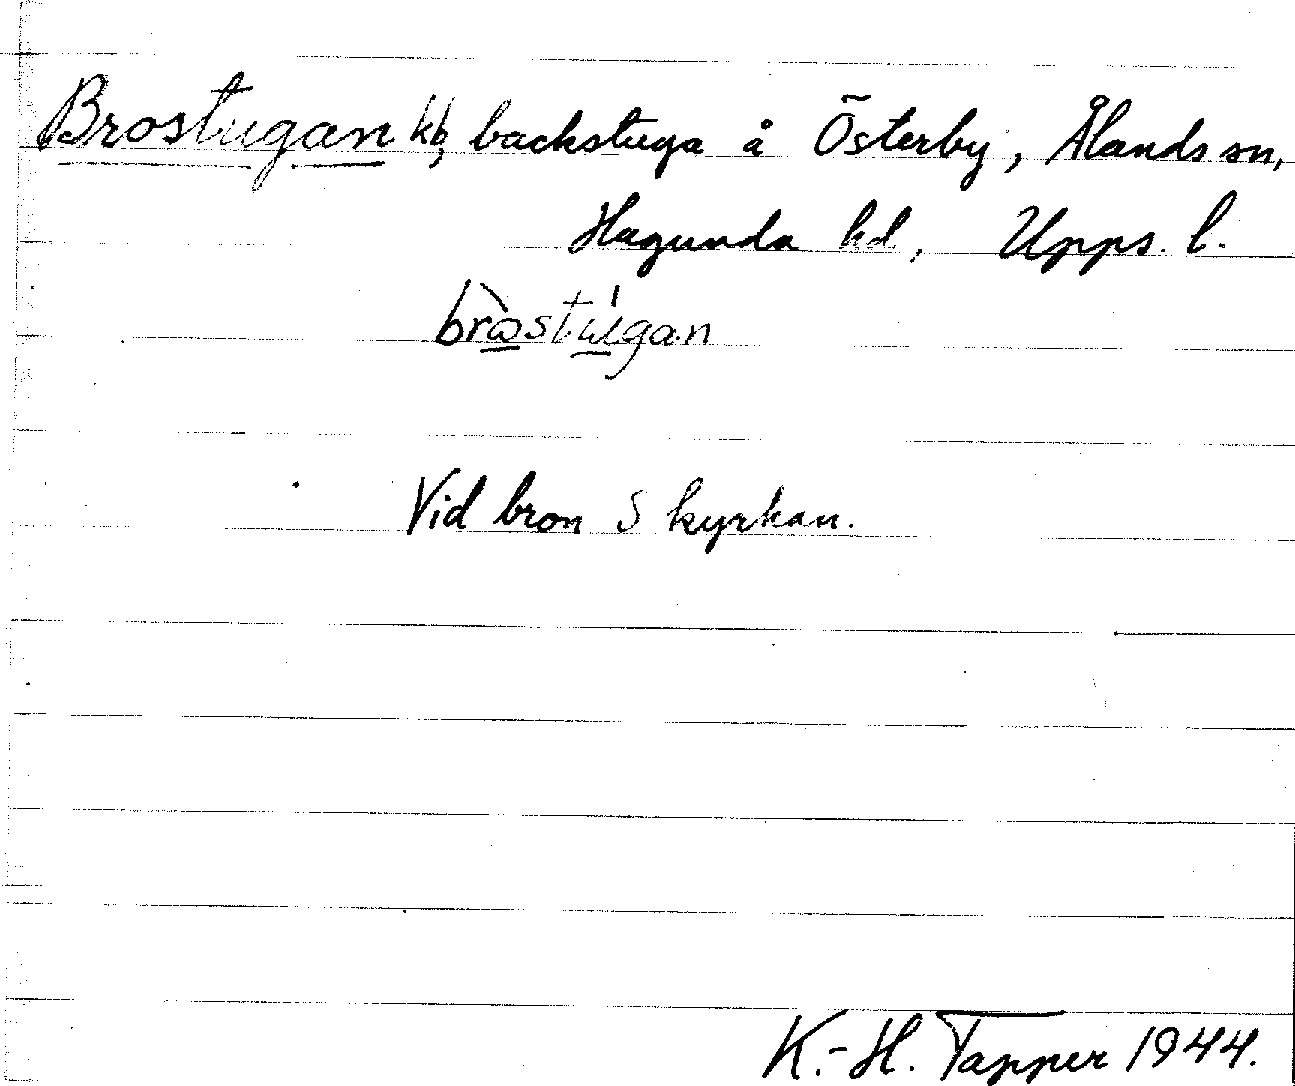 Brostugan kb, backstuga å Österby, Ålands sn,
Hagunda hd, Upps. l.
bròstúgan
Vid bron S kyrkan.
K.-H. Tapper 1944.